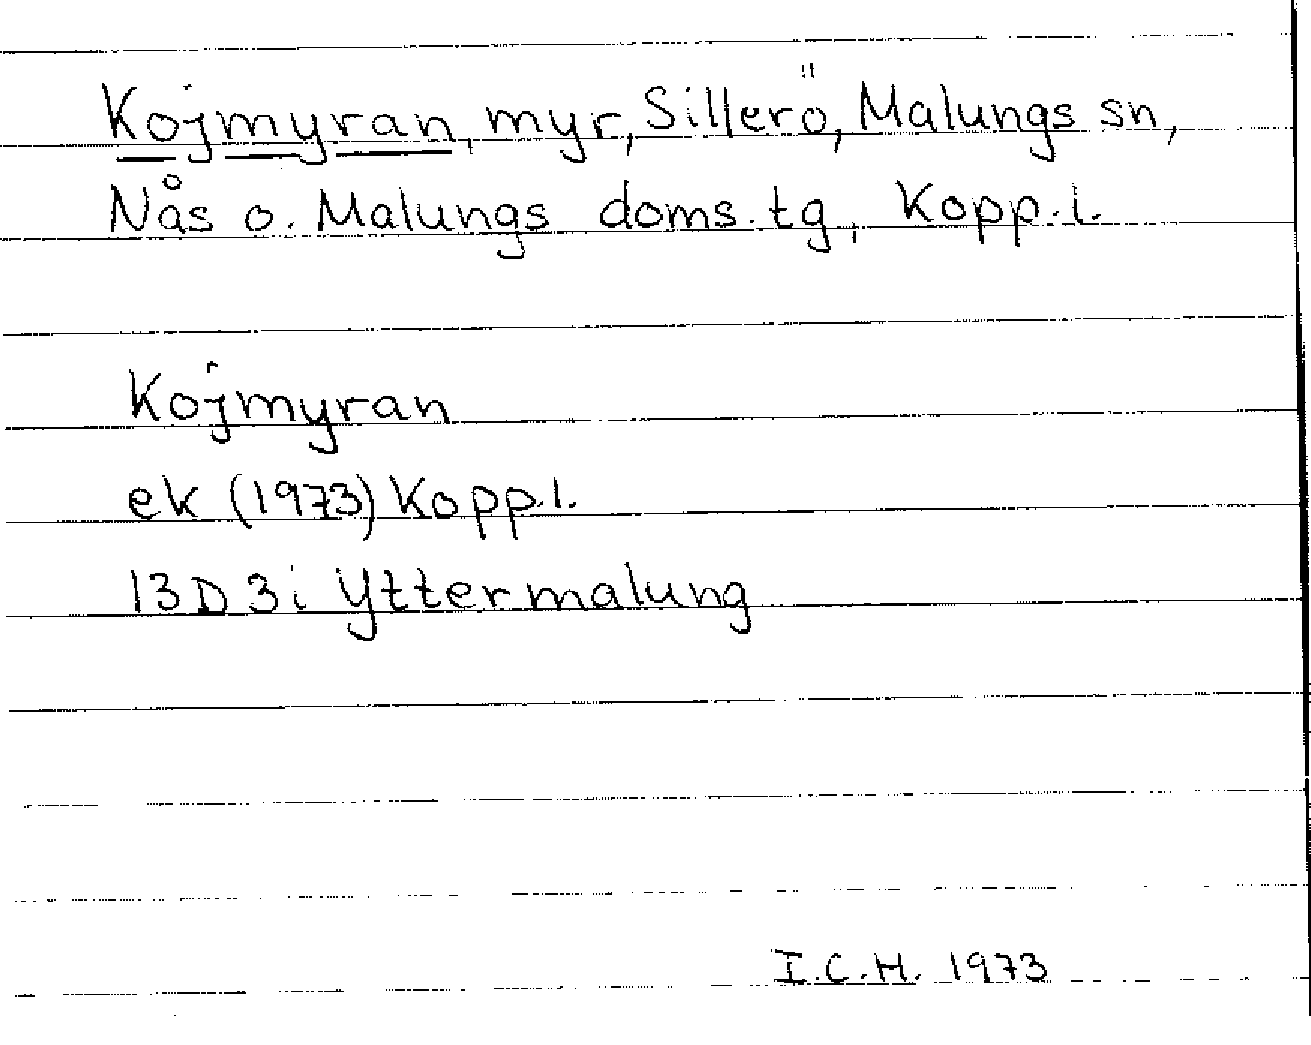 Kojmyran, myr, Sillerö, Malungs sn,
Nås o. Malungs doms.tg, Kopp.l.
Kojmyran
ek (1973) Kopp.l.
13D 3i Yttermalung
I.C.H. 1973